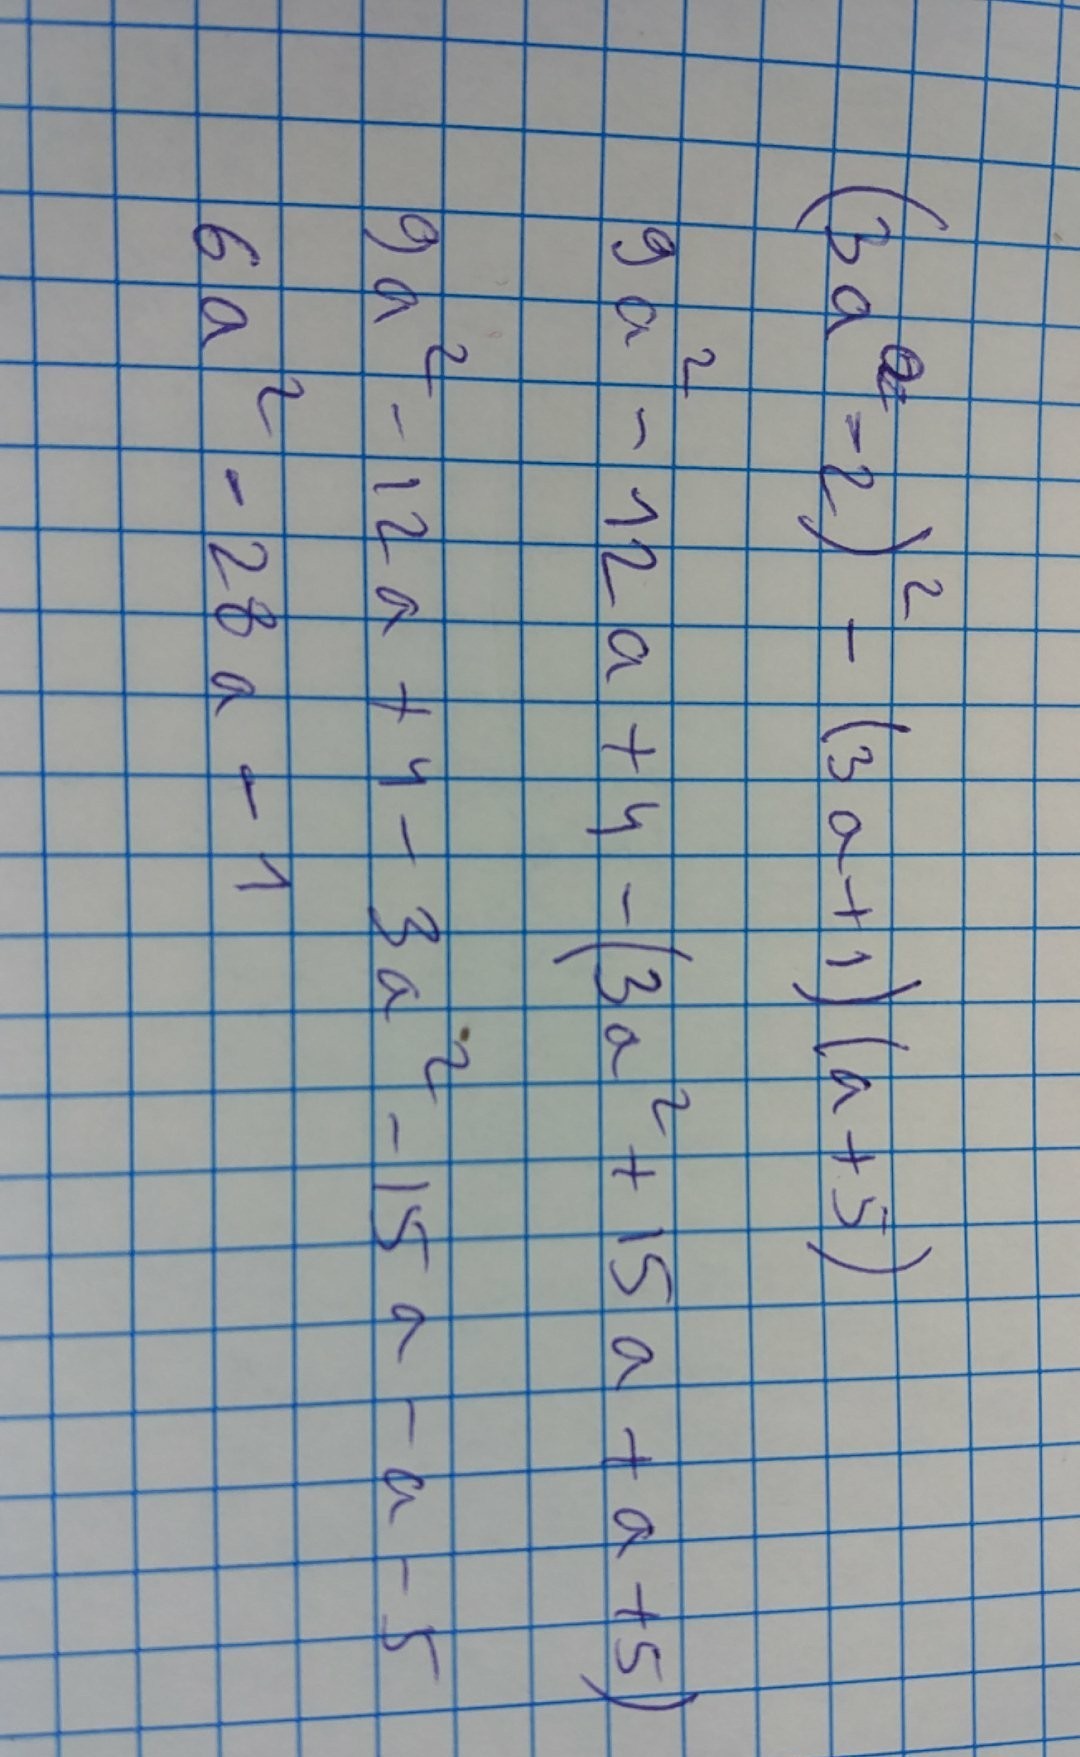 (3a-2)² - (3a+1)(a+5)
9a² - 12a + 4 - (3a² + 15a + a + 5)
9a² - 12a + 4 - 3a² - 15a - a - 5
6a² - 28a - 1